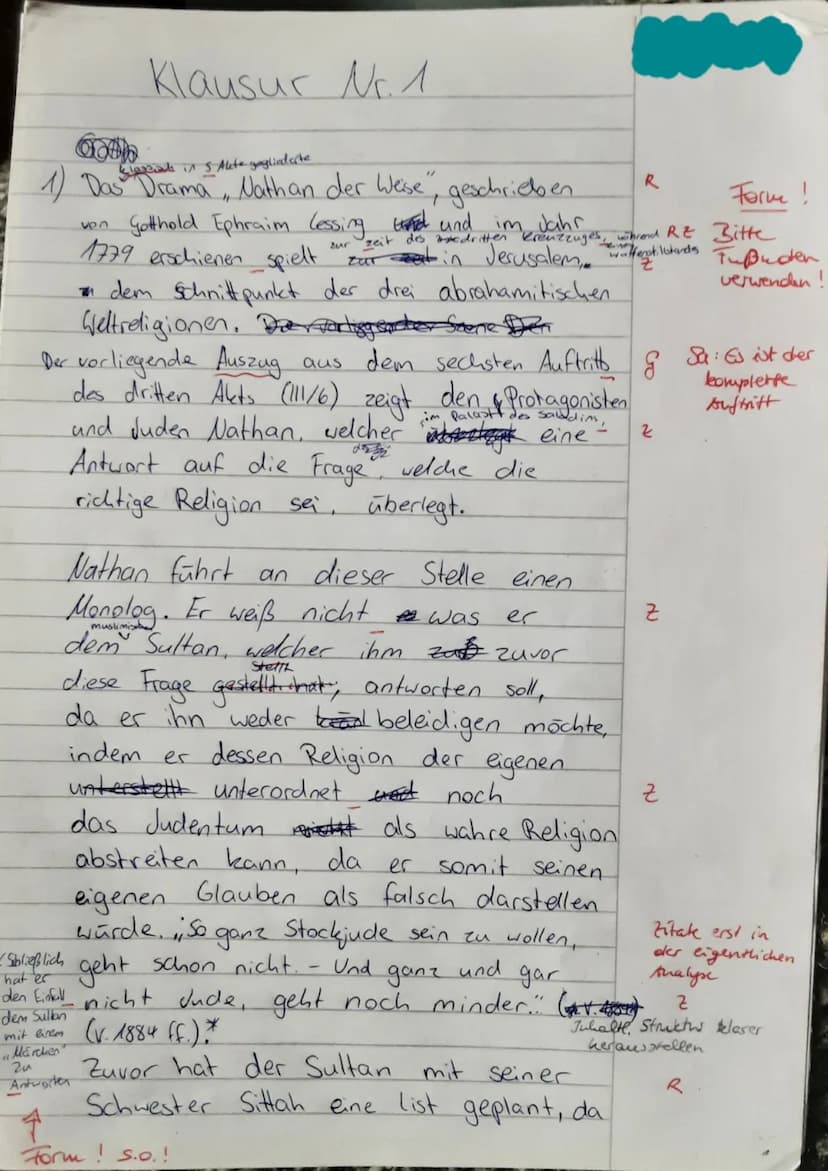 Klausur Nr. 1
klassisch in 5 Akte gegliederte
1) Das Drama „Nathan der Weise", geschrieben
R
Form!
von Gotthold Ephraim Lessing und im Jahr
zur Zeit des dritten Kreuzzuges, während eines Waffenstillstandes
R Z Bitte
1779 erschienen spielt in Jerusalem,
Z
Fußnoten
verwenden!
dem Schnittpunkt der drei abrahamitischen
Weltreligionen.
Der vorliegende Auszug aus dem sechsten Auftritt
Sa: Es ist der
komplette
Auftritt
des dritten Akts (III/6) zeigt den Protagonisten
im Palast des Saladin,
und Juden Nathan, welcher eine
Z
Antwort auf die Frage, welche die
richtige Religion sei, überlegt.
Nathan führt an dieser Stelle einen
Monolog. Er weiß nicht was er
Z
muslimischen
dem Sultan, welcher ihm zuvor
stellt
diese Frage gestellt hat, antworten soll,
da er ihn weder beleidigen möchte,
indem er dessen Religion der eigenen
unterstellt unterordnet und noch
Z
das Judentum als wahre Religion
abstreiten kann, da er somit seinen
eigenen Glauben als falsch darstellen
würde. „So ganz Stockjude sein zu wollen,
Zitate erst in
der eigentlichen
Analyse
geht schon nicht. – Und ganz und gar
nicht Jude, geht noch minder." (
Z
(v. 1884 ff.).*
Inhalte, Struktur klarer
herausstellen
Schließlich
hat er
den Einfall
dem Sultan
mit einem
„Märchen"
zu
Antworten
Zuvor hat der Sultan mit seiner
R
Schwester Sittah eine List geplant, da
Form! s.o.!